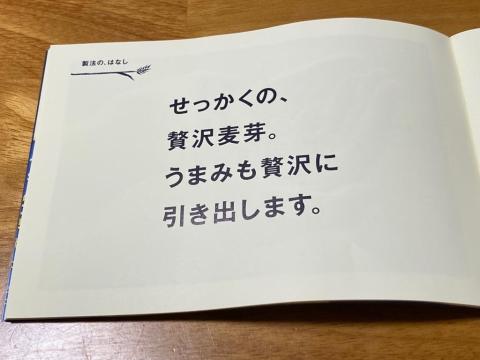 製法の、はなし
せっかくの、
贅沢麦芽。
うまみも贅沢に
引き出します。